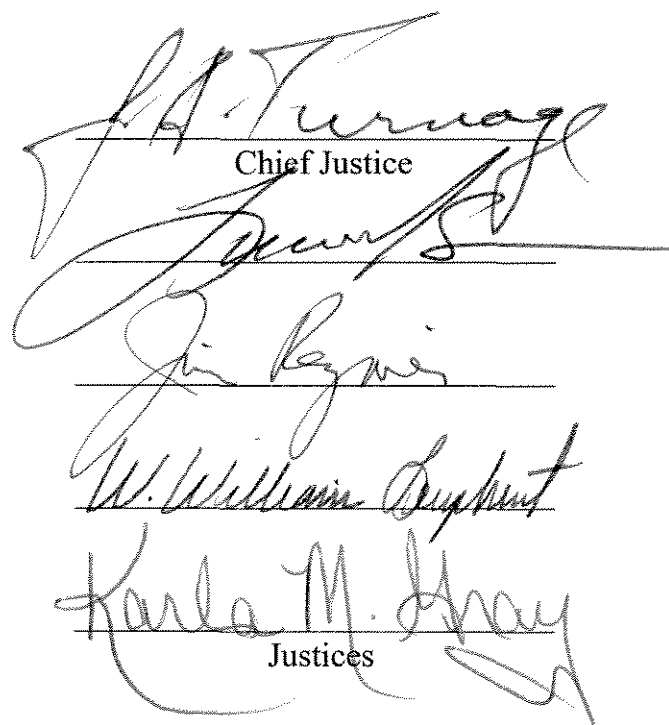 J. A. Turnage
Chief Justice
Jim Regnier
W. William Leaphart
Karla M. Gray
Justices